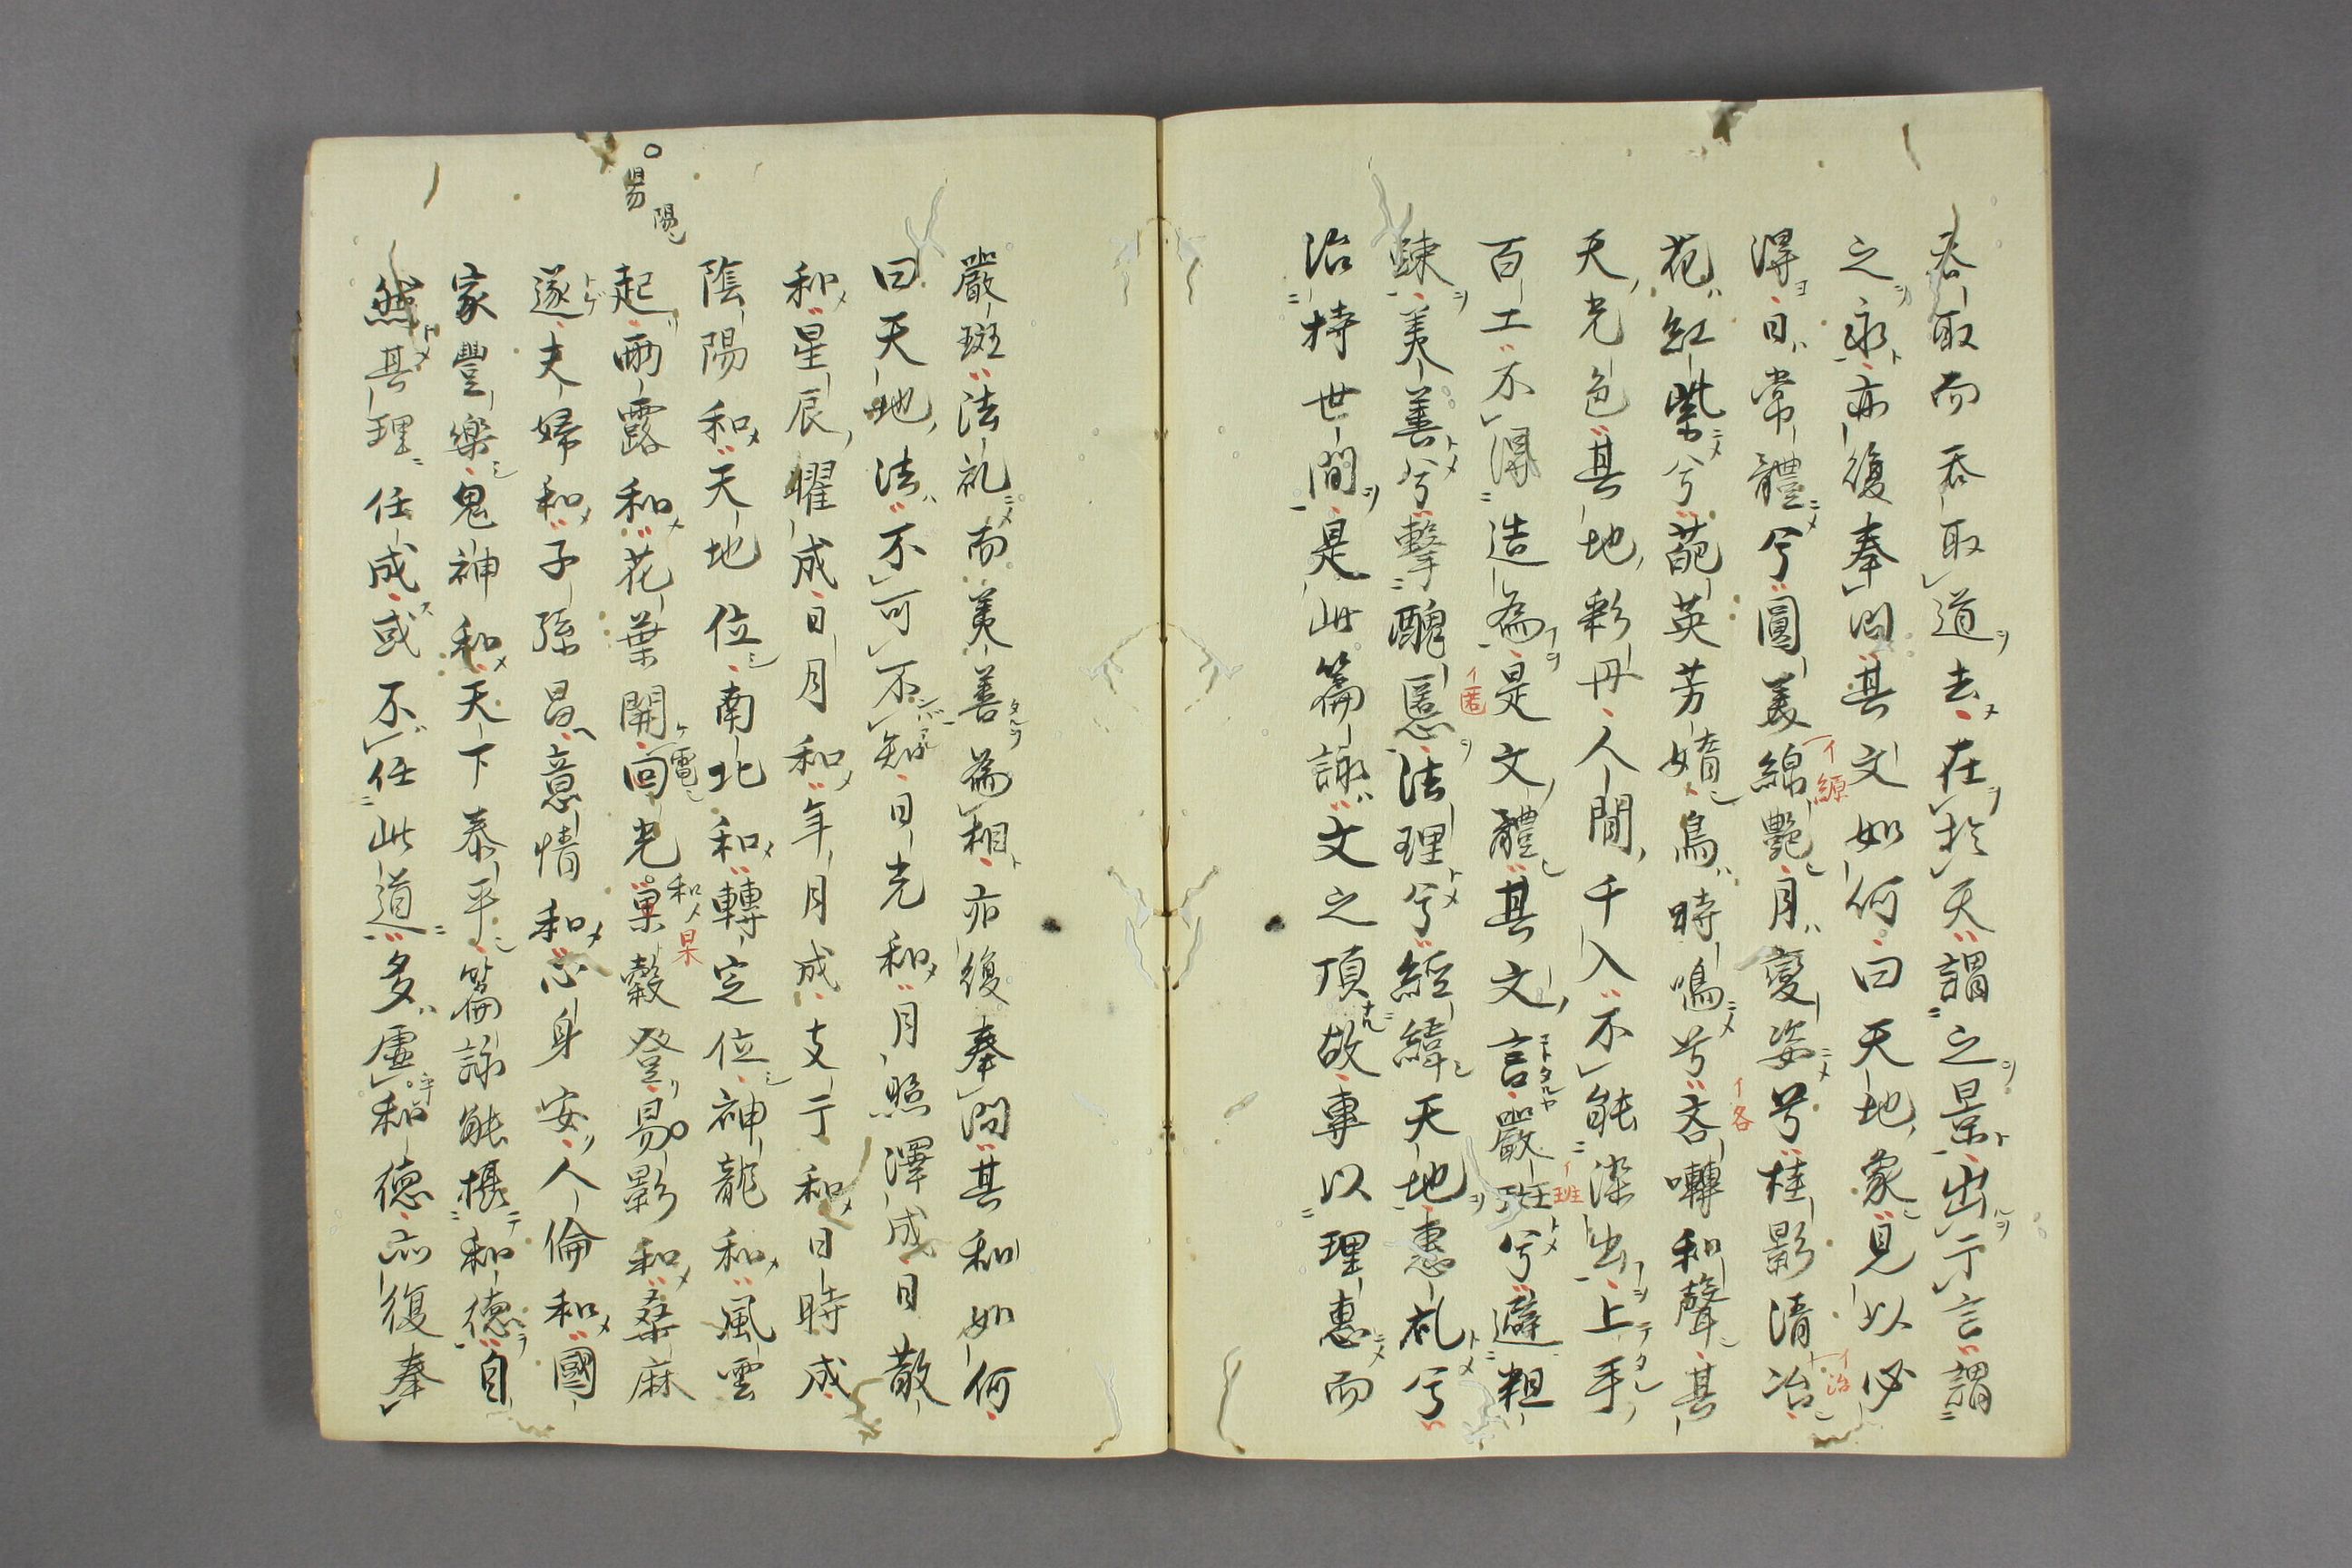 吞取而吞取道去在於天謂之景出于言謂
之永亦復奉問其文如何曰天地象見以必
得日常體兮圓美綿艷月變姿兮桂影清冶
花紅紫兮葩英芳婧鳥時鳴兮吝囀和聲其
天光色其地彩丹人間千入不能染出上手
百工不得造為是文體其文言嚴班兮避粗
踈美善兮擊醜慝法理兮經緯天地惠礼兮
治持世間是此篇詠文之頂故專以理惠而
嚴斑法礼而美善為相亦復奉問其和如何
曰天地法不可不知日光和月照澤成日散
和星辰曜成日月和年月成支干和日時成
陰陽和天地位南北和轉定位神龍和風雲
起雨露和花葉開回光菓穀登易影和桑麻
遂夫婦和子孫昌意情和心身安人倫和國
家豐樂鬼神和天下泰平篇詠能攝和德自
然其理任成或不任此道多虛和德亦復奉
イ縓
イ治
イ各
イ班
イ匿
電
和メ
果
易
陽